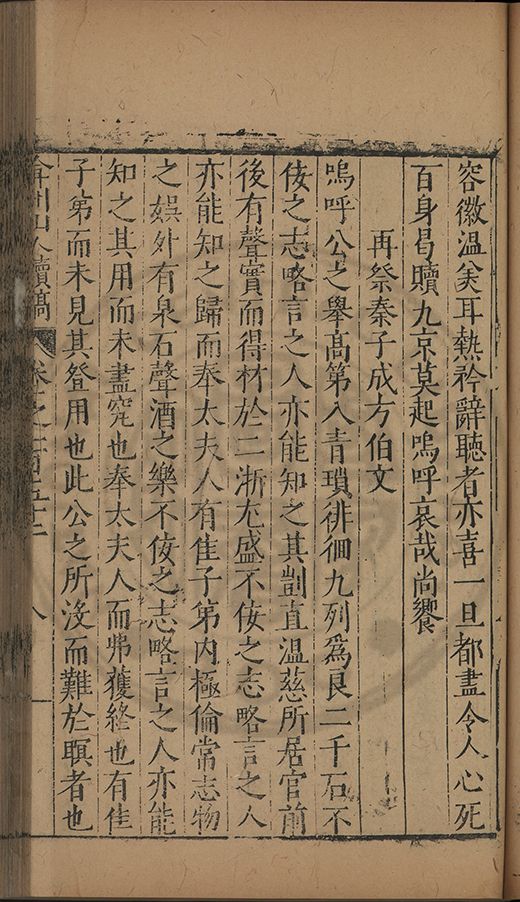 容徽溫矣耳熱衿辭聽者亦喜一旦都盡令人心死
百身曷贖九京莫起嗚呼哀哉尚饗
再祭秦子成方伯文
嗚呼公之舉高第入青瑣徘徊九列爲良二千石不
佞之志略言之人亦能知之其剴直溫慈所居官前
後有聲實而得材於二浙尤盛不佞之志略言之人
亦能知之歸而奉太夫人有隹子弟內極倫常志物
之娛外有泉石聲酒之樂不佞之志略言之人亦能
知之其用而未盡究也奉太夫人而弗獲終也有佳
子弟而未見其發用也此公之所沒而難於瞑者也
弇州山人續稿 卷之一百五十二 八